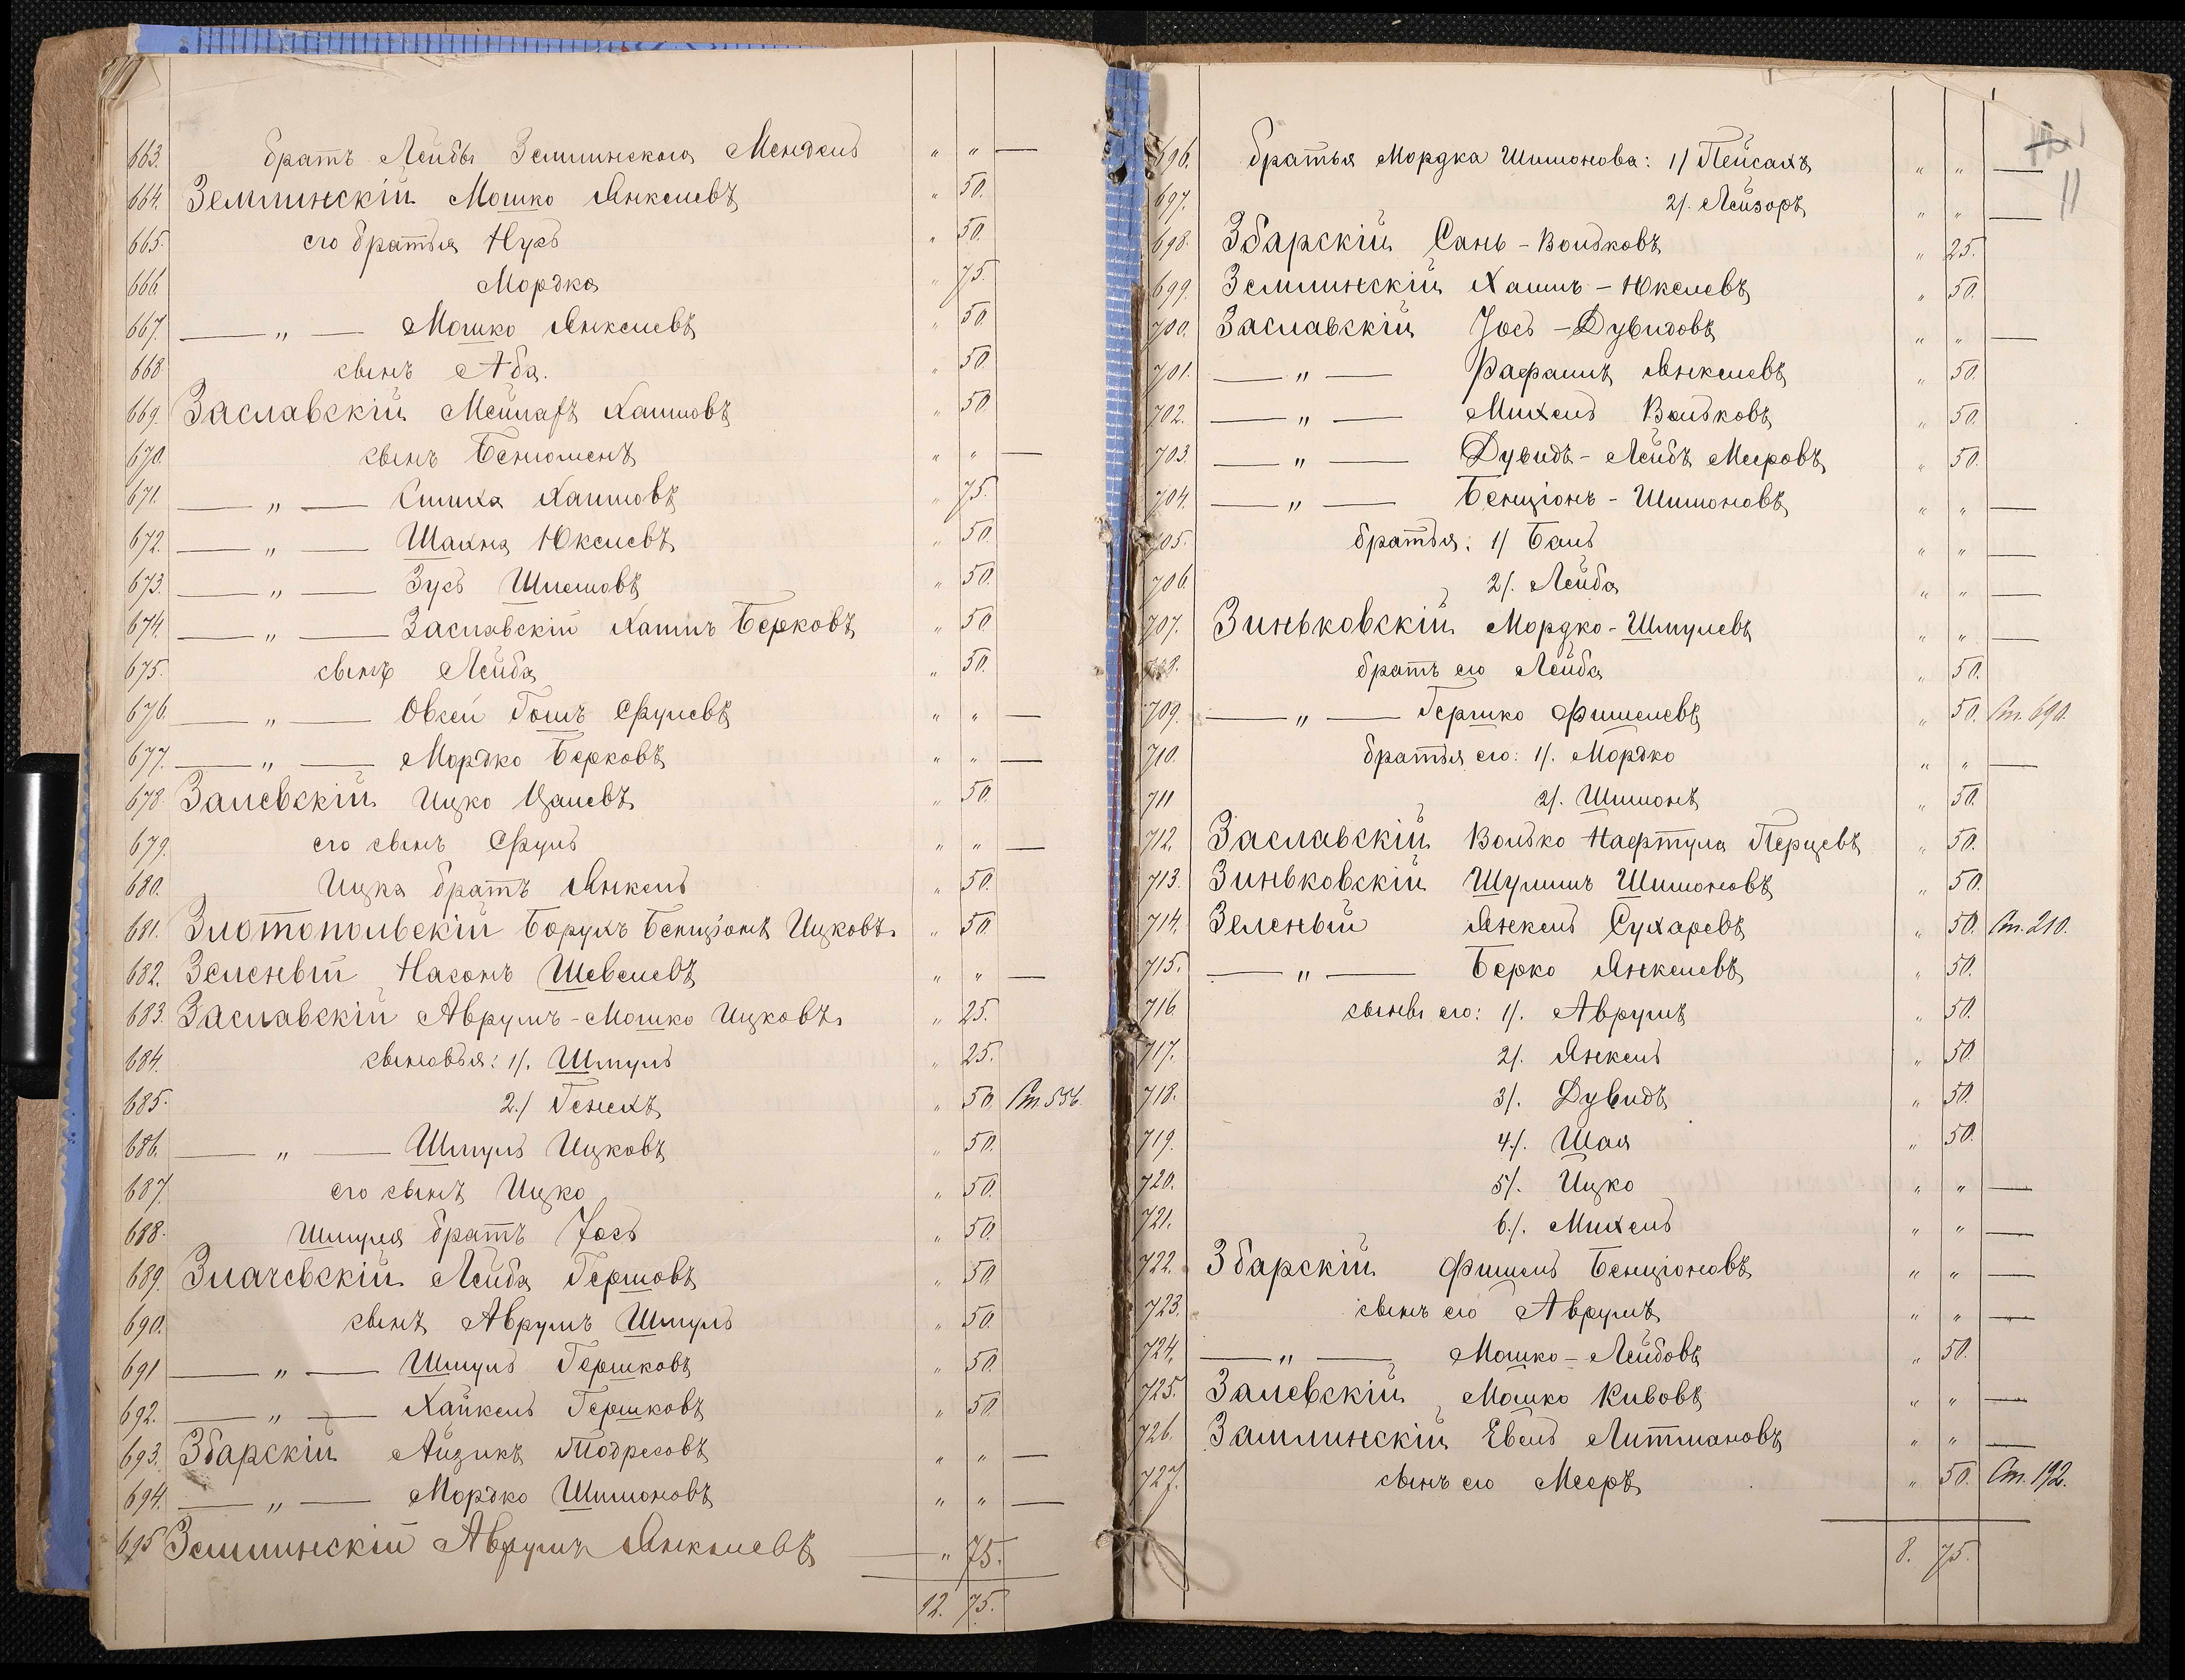 663. братъ Лейбы Землинскаго Мендель " " —
664. Землинскій Мошко Янкелевъ " 50.
665. его братья Нусь " 50.
666 Мордко " 75.
667. — " — Мошко Янкелевъ " 50.
668 сынъ Аба. " 50.
669. Заславскій Мейлахъ Хаимовъ " 50.
670. сынъ Беніоменъ " " —
671. — " — Симха Хаимовъ " 75.
672. — " — Шахна Юкелевъ " 50.
673. — " — Зусь Шлемовъ " 50.
674. — " — Заславскій Хаимъ Берковъ " 50
675. сынъ Лейба " 50.
676. — " — Овсей Гошъ Срулевъ " " —
677. — " — Мордко Берковъ " " —
678. Залевскій Ицко Цалевъ " 50.
679. его сынъ Сруль " " —
680. Ицка братъ Янкель " 50.
681. Злотопольскій Борухъ Бенціонъ Ицковъ. " 50
682. Зеленый Насонъ Шевелевъ " " —
683. Заславскій Аврумъ-Мошко Ицковъ. " 25.
684. сыновья: 1/. Шмуль " 25.
685. 2./ Генехъ " 50. Ст. 556.
686. — " — Шмуль Ицковъ " 50.
687. его сынъ Ицко " 50.
688. Шмуля братъ Іось " 50.
689. Злачевскій Лейба Гершовъ " 50
690. сынъ Аврумъ Шмуль " 50.
691 — " — Шмуль Гершковъ " 50.
692. — " — Хайкель Гершковъ " 50.
693. Збарскій Айзикъ Тодресовъ " " —
694. — " — Мордко Шимоновъ " " —
695 Землинскій Аврумъ Янкелевъ — " 75.
12. 75.
11
696. братья Мордка Шимонова: 1/ Пейсахъ " " —
697. 2/. Лейзоръ " " —
698. Збарскій Сань-Вольковъ " 25.
699. Землинскій Хаимъ-Юкелевъ " 50.
700. Заславскій Іось-Дувидовъ " " —
701. — " — Рафаилъ Янкелевъ " 50.
702. — " — Михель Вольковъ " 50.
703. — " — Дувидъ-Лейбъ Мееровъ " 50.
704. — " — Бенціонъ-Шимоновъ " " —
705. братья: 1/ Баль " " —
706 2/. Лейба " " —
707. Зиньковскій Мордко-Шмулевъ " " —
708. братъ его Лейба " 50.
709. — " — Гершко Фишелевъ " 50. Ст. 690.
710. братья его: 1/. Мордко " " —
711 2/. Шимонъ " 50.
712. Заславскій Волько Нафтула Перцевъ " 50.
713. Зиньковскій Шулимъ Шимоновъ " 50.
714. Зеленый Янкель Сухаревъ " 50. Ст. 210.
715. — " — Берко Янкелевъ " 50.
716. сыны его: 1/. Аврумъ " 50.
717. 2/. Янкель " 50.
718. 3/. Дувидъ " 50.
719. 4/. Шая " 50.
720. 5/. Ицко " " —
721. 6/. Михель " " —
722. Збарскій Фишель Бенціоновъ " " —
723. сынъ его Аврумъ " " —
724. — " — Мошко-Лейбовъ " 50.
725. Залевскій Мошко Кивовъ " " —
726. Замлинскій Евель Литмановъ " " —
727. сынъ его Мееръ " 50. Ст. 192.
8. 75.